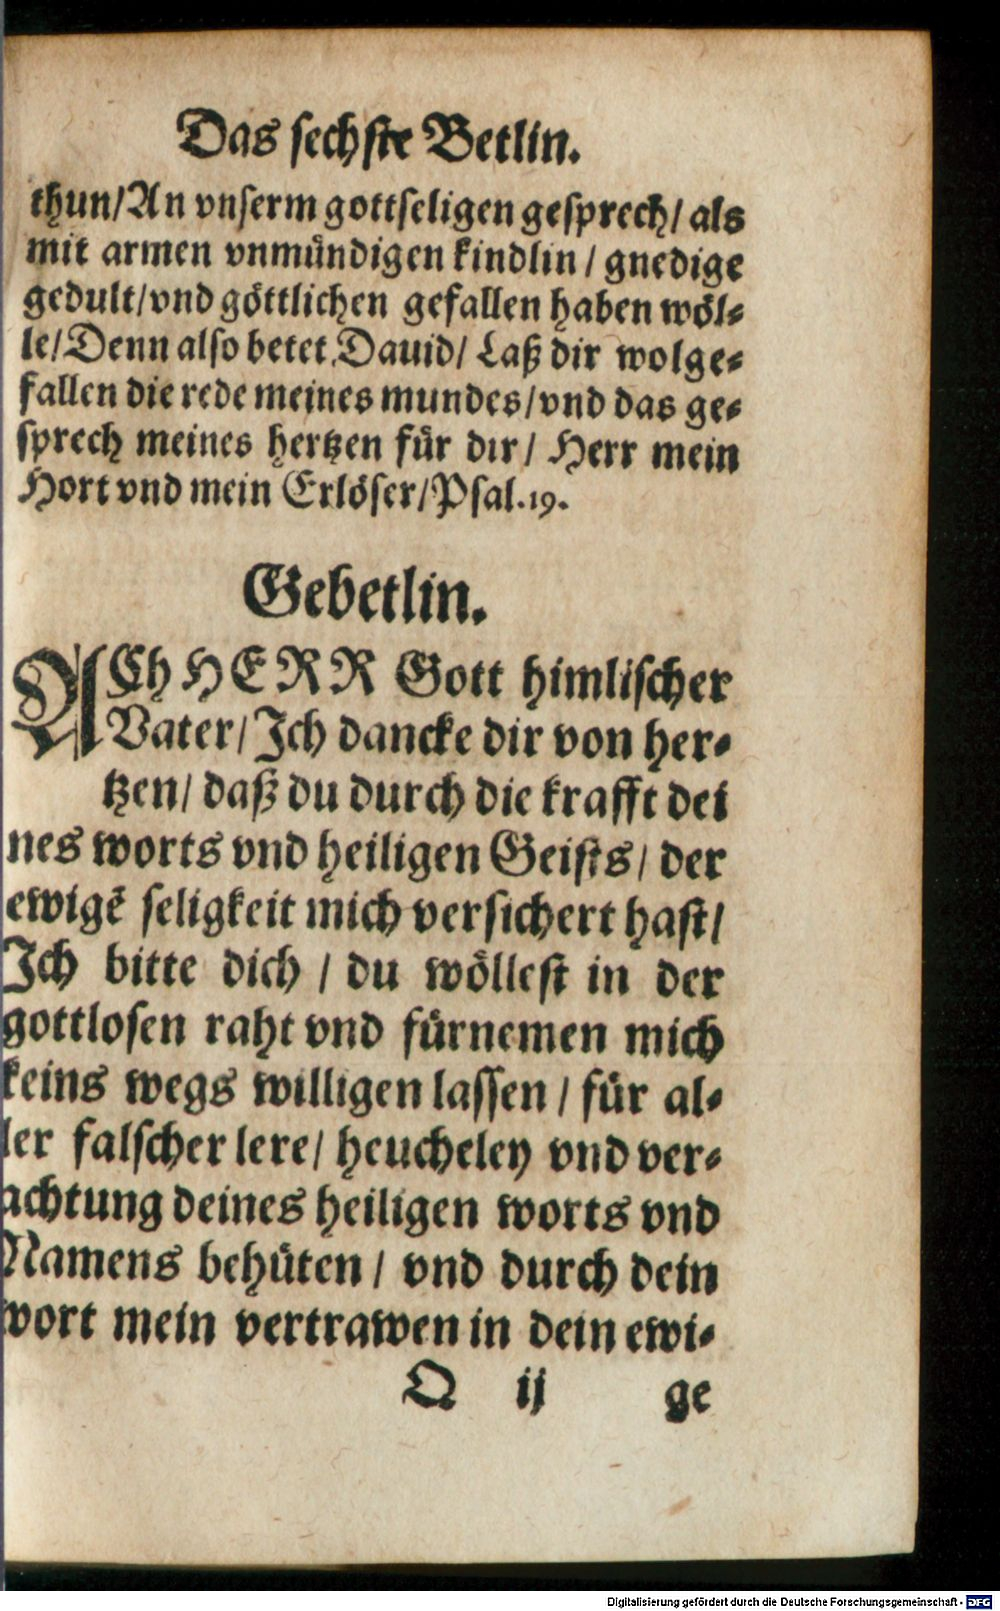 Das sechste Betlin.
thun/An vnserm gottseligen gesprech/ als
mit armen vnmündigen kindlin / gnedige
gedult/vnd göttlichen gefallen haben wöl-
le/Denn also betet Dauid/ Laß dir wolge-
fallen die rede meines mundes/vnd das ge-
sprech meines hertzen für dir/ Herr mein
Hort vnd mein Erlöser/Psal.19.
Gebetlin.
ACh HERR Gott himlischer
Vater/Ich dancke dir von her-
tzen/ daß du durch die krafft dei
nes worts vnd heiligen Geists/ der
ewigē seligkeit mich versichert hast/
Ich bitte dich / du wöllest in der
gottlosen raht vnd fürnemen mich
keins wegs willigen lassen / für al-
ler falscher lere/ heucheley vnd ver-
achtung deines heiligen worts vnd
Namens behüten / vnd durch dein
wort mein vertrawen in dein ewi-
Q ij ge
Digitalisierung gefördert durch die Deutsche Forschungsgemeinschaft - DFG